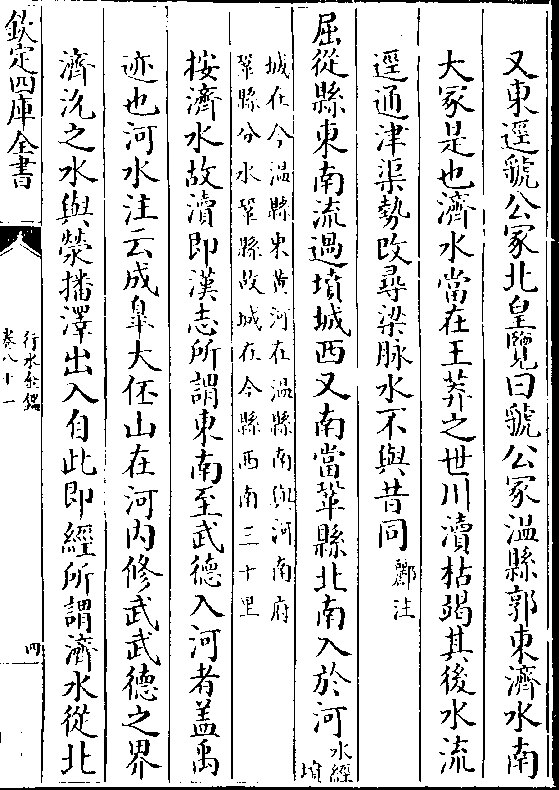 又東逕虢公冢北皇覽曰虢公冢溫縣郭東濟水南
大冢是也濟水當在王莽之世川瀆枯竭其後水流
逕通津渠勢改尋梁脉水不與昔同酈注
屈從縣東南流過墳城西又南當鞏縣北南入於河水經墳
城在今温縣東黄河在温縣南與河南府
鞏縣分水鞏縣故城在今縣西南三十里
按濟水故瀆即漢志所謂東南至武德入河者蓋禹
迹也河水注云成臯大伾山在河内修武武德之界
濟沇之水與滎播澤出入自此即經所謂濟水從北
欽定四庫全書
行水金鑑
卷八十一
四